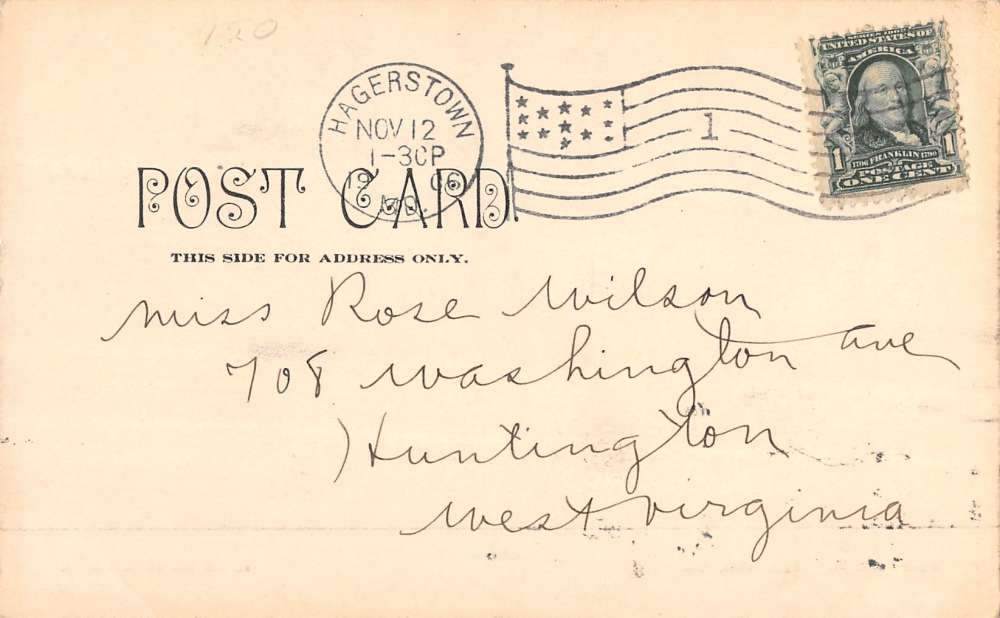 120
HAGERSTOWN
NOV 12
1-30P
1906
MD.
1
SERIES 1902
UNITED STATES OF
AMERICA
1 1
1706 FRANKLIN 1790
POSTAGE
ONE CENT
POST CARD.
THIS SIDE FOR ADDRESS ONLY.
Miss Rose Wilson
708 Washington Ave
Huntington
West Virginia